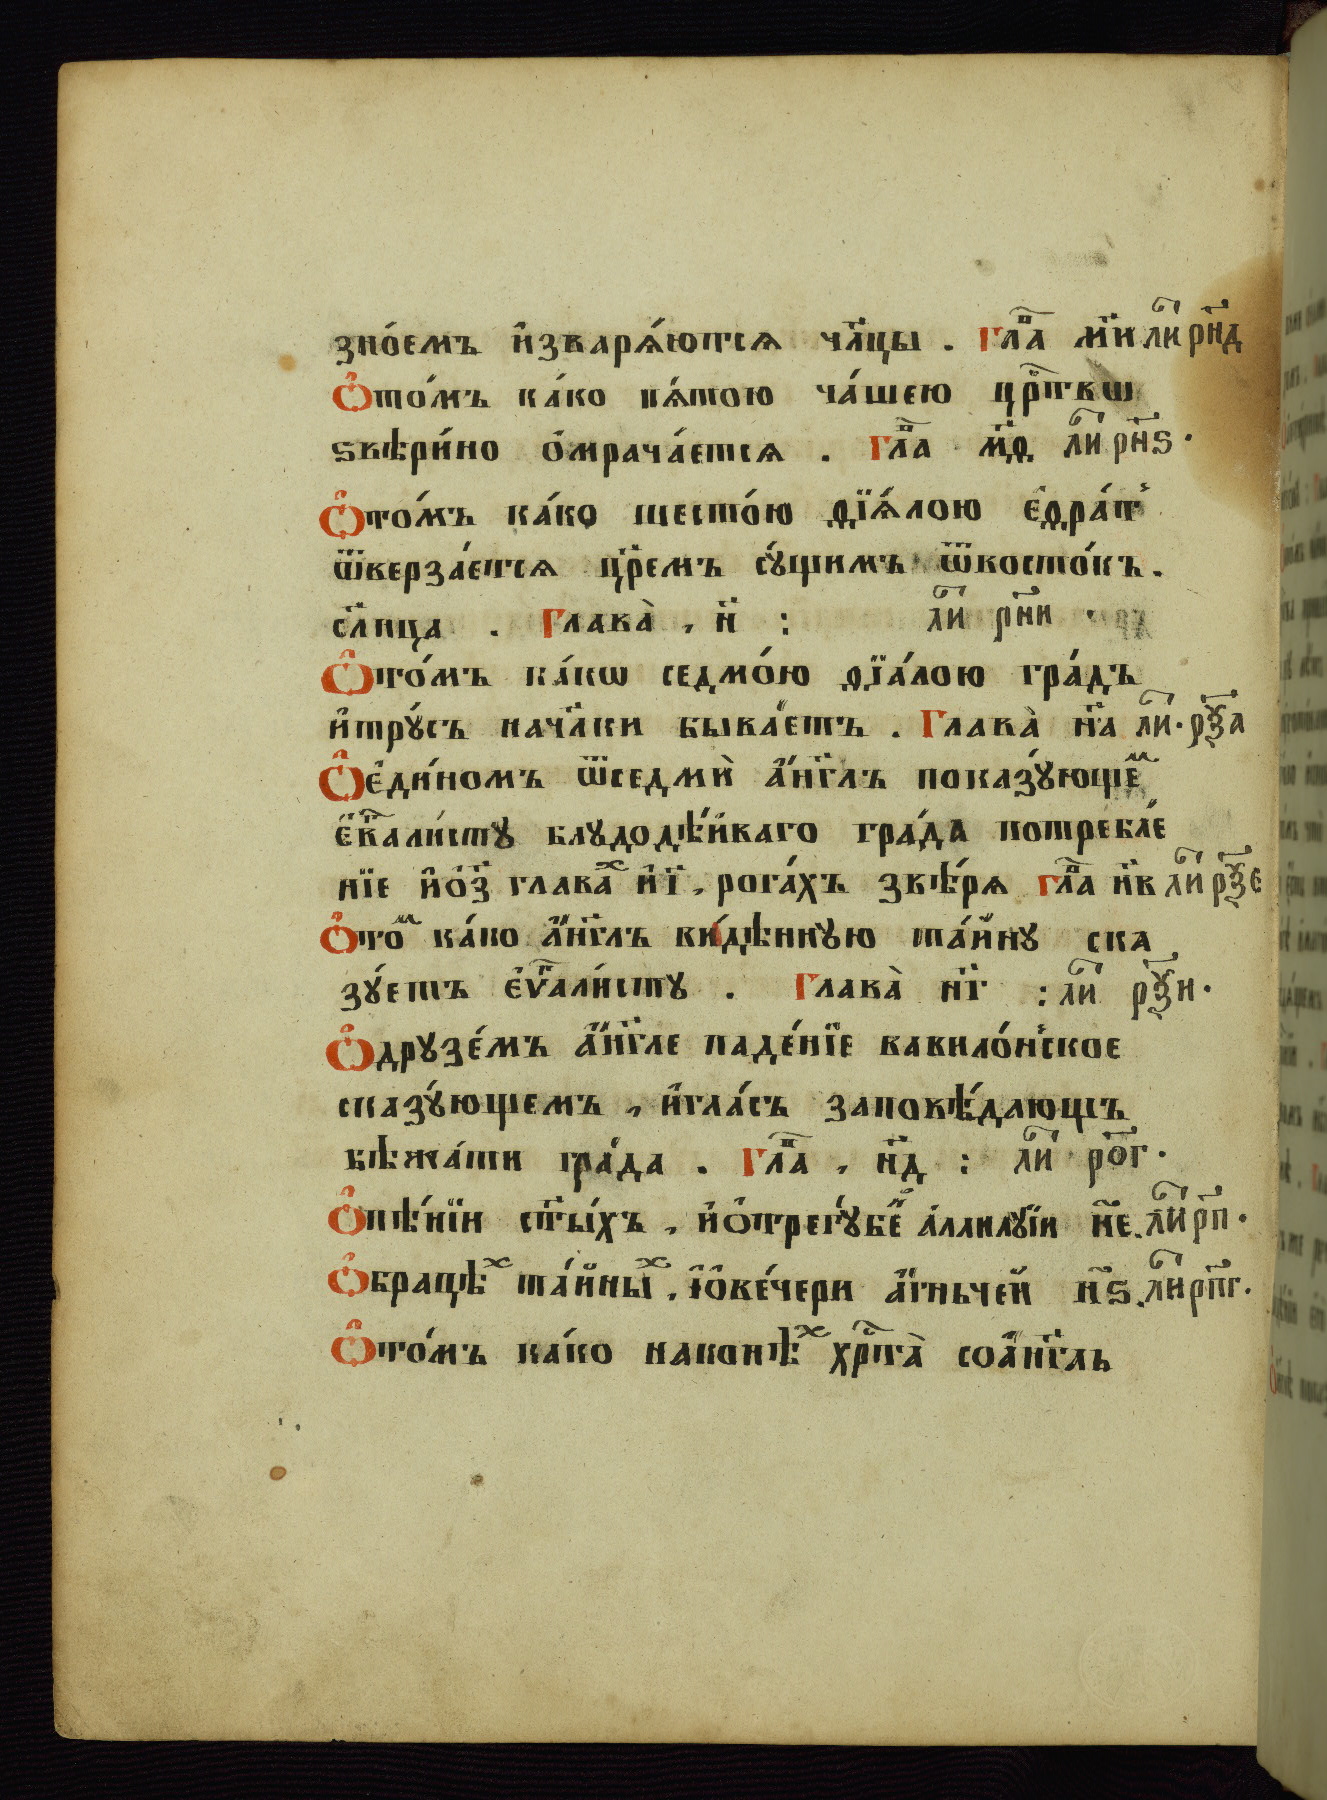 зно́емъ и҆зваря́ютсѧ чл҃цы . гла҃ м҃и ли҃ рн҃д
Ѻ҆то́мъ ка́ко пѧ́тою ча́шею цр҃твѡ
ѕвѣри́но ѻ҆мрача́етсѧ . гла҃ м҃ѳ ли҃ рн҃ѕ ·
Ѻ҆то́мъ ка́ко шесто́ю фїѧ́лою є҆фра́т
ѿверза́етсѧ цр҃емъ сꙋ́щимъ ѿвосто́къ .
сл҃нца . Глава̀ , н҃ : ли҃ рн҃и ·
Ѻ҆то́мъ ка́кѡ седмо́ю фїа́лою гра́дъ
и҆трꙋ́съ нач҃лки быва́етъ . Глава̀ н҃а ли҃ · рѯ҃а
Ѻ҆є҆ди́номъ ѿседмѝ а҆́нг҃лъ показꙋ́ющеⷨ
є҆в҃али́стꙋ блꙋдодѣ́йкаго гра́да потребле́
нїе и҆ѻ҆з҃ главаⷯ и҆ і҃ , рога́хъ ѕвѣ́рѧ гла҃ н҃в ли҃ рѯ҃є
Ѻ҆тоⷨ ка́ко а҆́нг҃лъ ви́дѣннꙋю та́йнꙋ ска
зꙋ́етъ є҆ѵ҃али́стꙋ . Глава̀ н҃г : ли҃ рѯ҃и ·
Ѻ҆дрꙋзе́мъ а҆́нг҃ле паде́нїе вавило́нское
сказꙋ́ющемъ , и҆гла́съ заповѣ́дающъ
бѣжа́ти гра́да . Гла҃ , н҃д : ли҃ рѻ҃г ·
Ѻ҆пѣ́нїи ст҃ы́хъ , и҆ѻ҆трегꙋ́бѣⷨ а҆ллилꙋ́їи н҃є . ли҃ рп҃ ·
Ѻ҆брацѣⷯ та́йныⷯ , і҆ѻ҆ве́чери а҆́гньчей н҃ѕ . ли҃ рп҃г ·
Ѻ҆то́мъ ка́ко наконѣⷯ хр҃та̀ соа҆́нг҃лъ